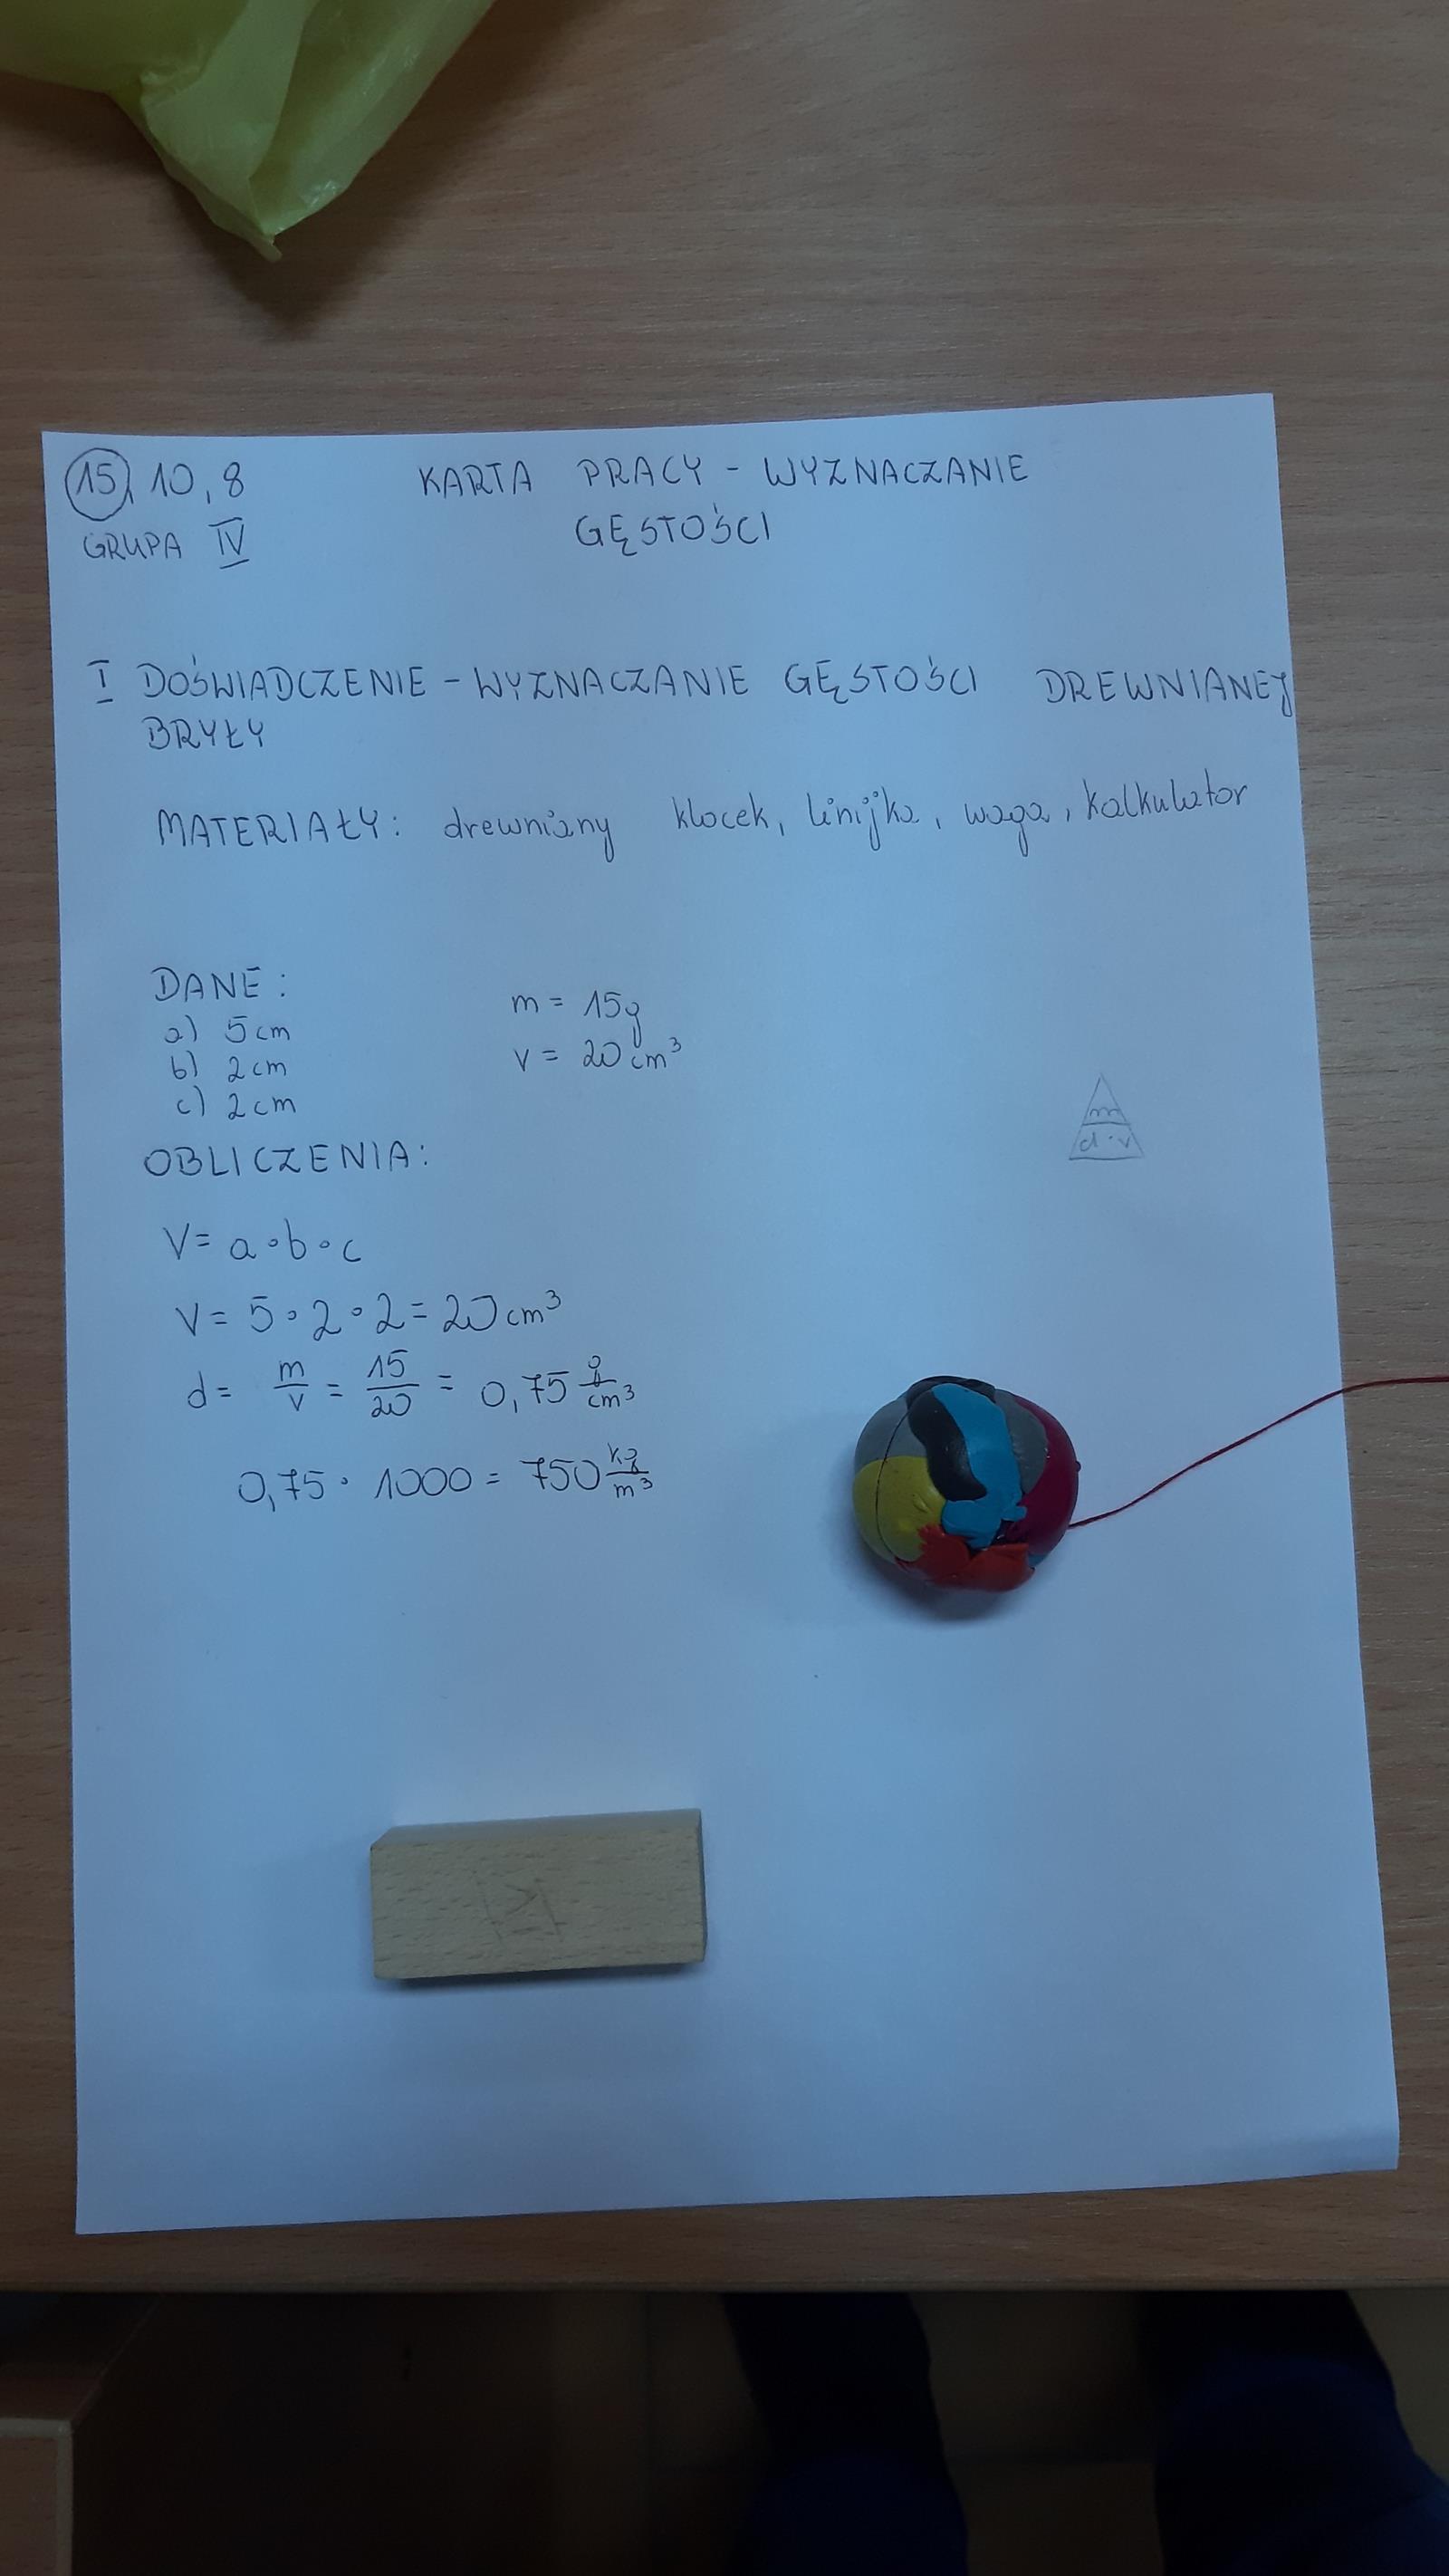 15, 10, 8 KARTA PRACY - WYZNACZANIE
GRUPA IV GĘSTOŚCI
I DOŚWIADCZENIE - WYZNACZANIE GĘSTOŚCI DREWNIANEJ
BRYŁY
MATERIAŁY: drewniany klocek, linijka, waga, kalkulator
DANE:
a) 5 cm
b) 2 cm
c) 2 cm
m = 15g
v = 20 cm³
m
d · v
OBLICZENIA:
V = a · b · c
V = 5 · 2 · 2 = 20 cm³
d = m/v = 15/20 = 0,75 g/cm³
0,75 · 1000 = 750 kg/m³